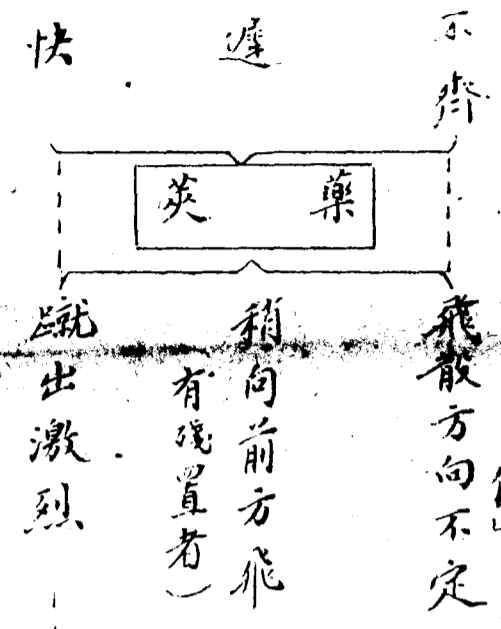 不齊
遲
快
藥莢
飛散方向不定
稍向前方飛
有殘置者）
蹴出激烈